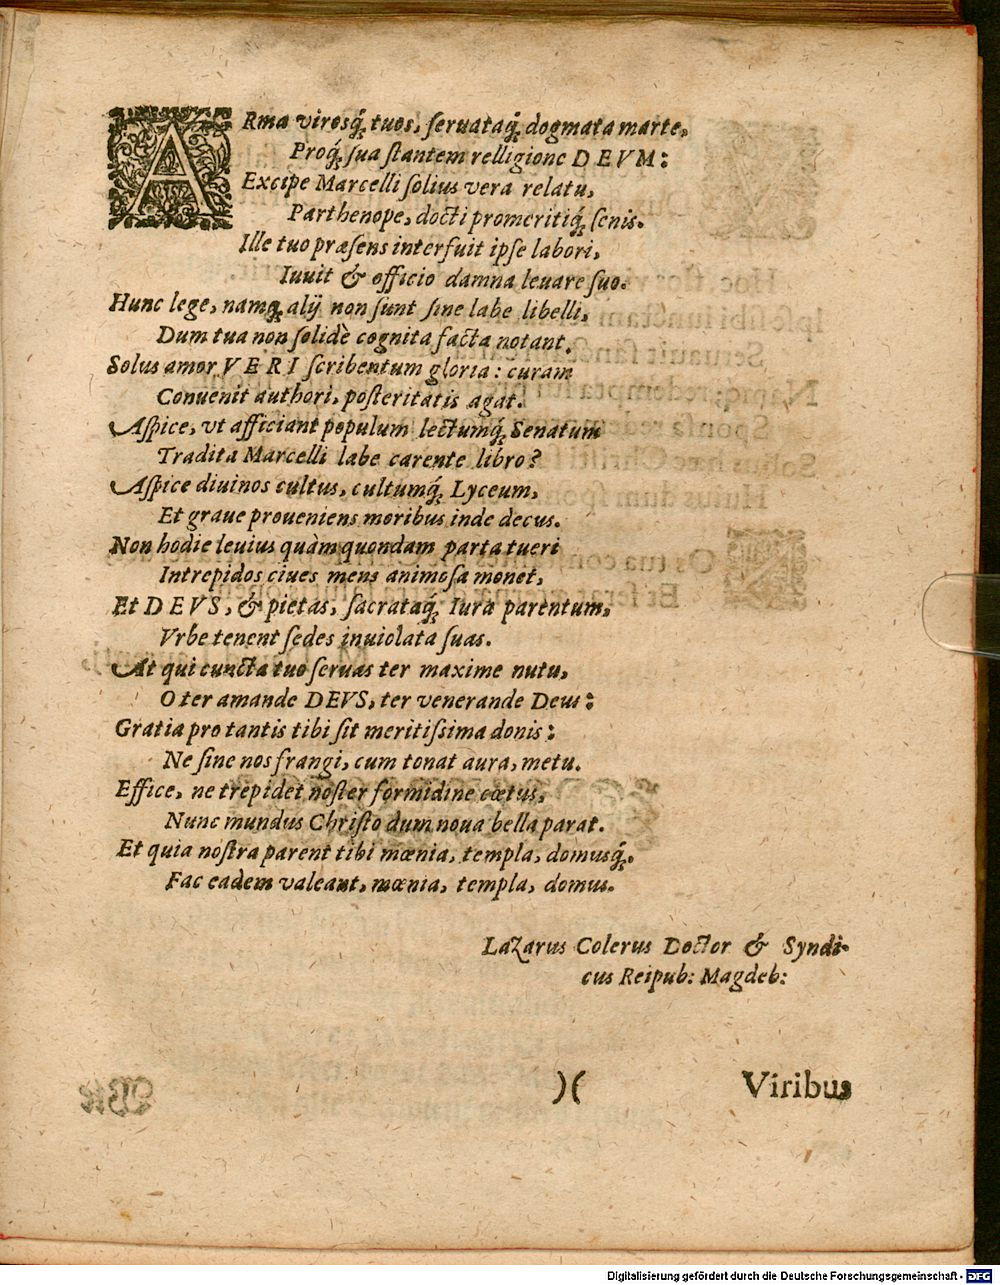 ARma virosq́; tuos, ſeruataq́; dogmata marte,
Proq́; ſua ſtantem relligione DEVM:
Excipe Marcelli ſolius vera relatu,
Parthenope, docti promeritiq́; ſenis.
Ille tuo præſens interfuit ipſe labori,
Iuuit & officio damna leuare ſuo.
Hunc lege, namq; alij non ſunt ſine labe libelli,
Dum tua non ſolidè cognita facta notant.
Solus amor VERI ſcribentum gloria: curam
Conuenit authori, poſteritatis agat.
Aſpice, vt afficiant populum lectumq́; Senatum
Tradita Marcelli labe carente libro?
Aſpice diuinos cultus, cultumq́; Lyceum,
Et graue proueniens moribus inde decus.
Non hodie leuius quàm quondam parta tueri
Intrepidos ciues mens animoſa monet,
Et DEVS, & pietas, ſacrataq́; Iura parentum,
Vrbe tenent ſedes inuiolata ſuas.
At qui cuncta tuo ſeruas ter maxime nutu,
O ter amande DEVS, ter venerande Deus:
Gratia pro tantis tibi ſit meritiſsima donis:
Ne ſine nos frangi, cum tonat aura, metu.
Effice, ne trepidet noſter formidine cœtus,
Nunc mundus Chriſto dum noua bella parat.
Et quia noſtra parent tibi mœnia, templa, domusq́;.
Fac eadem valeant, mœnia, templa, domus.
Lazarus Colerus Doctor & Syndi-
cus Reipub: Magdeb:
)( Viribus
Digitalisierung gefördert durch die Deutsche Forschungsgemeinschaft - DFG